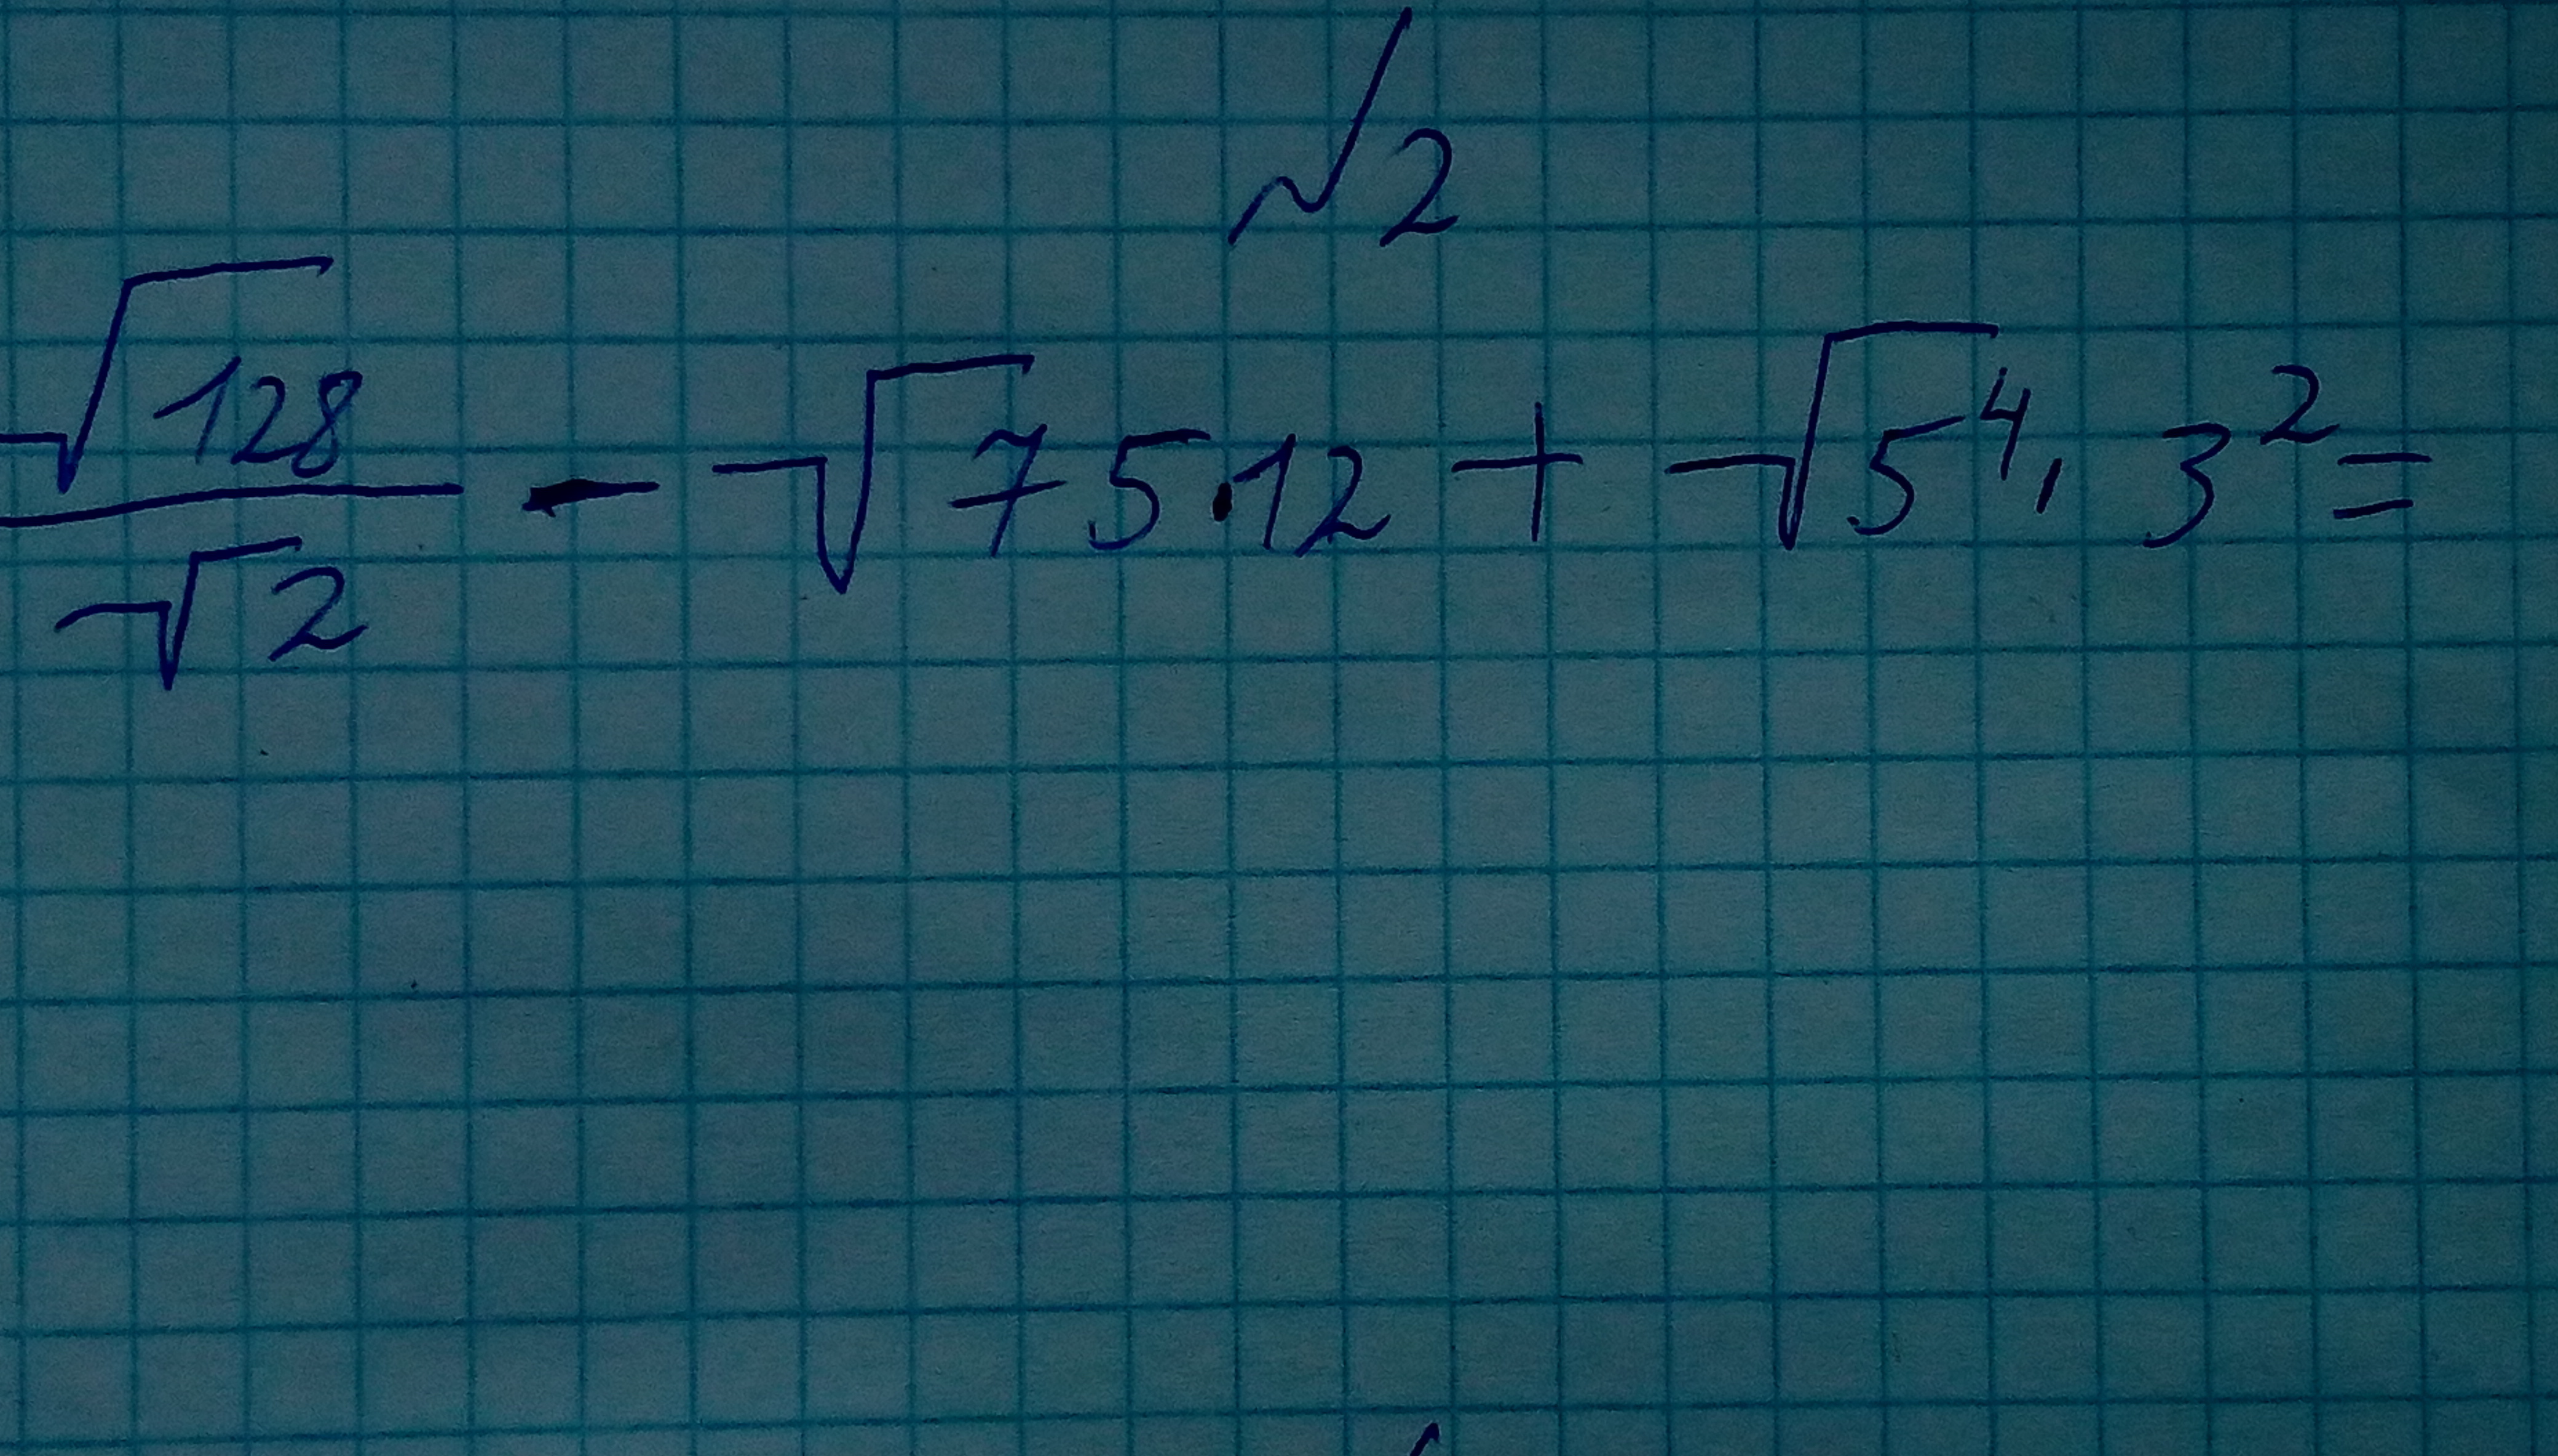 №2
√128/√2 - √75·12 + √5⁴· 3² =